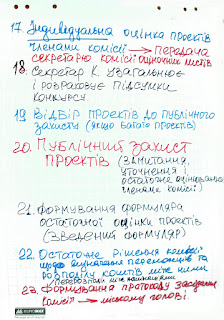 17. Індивідуальна оцінка проєктів
членами комісії → передача
секретарю комісії оціночних листів
18. Секретар К. узагальнює
і розраховує підсумки
конкурсу.
19 Відбір проєктів до публічного
захисту (якщо багато проєктів)
20. Публічний захист
проєктів (запитання,
уточнення і
остаточне оцінювання
членами комісії)
21. Формування формуляра
остаточної оцінки проєктів
(зведений формуляр)
22. Остаточне рішення комісії
щодо визначення переможців та
розподілу коштів між ними
23. Формування протоколу засідання
комісії → міському голові.